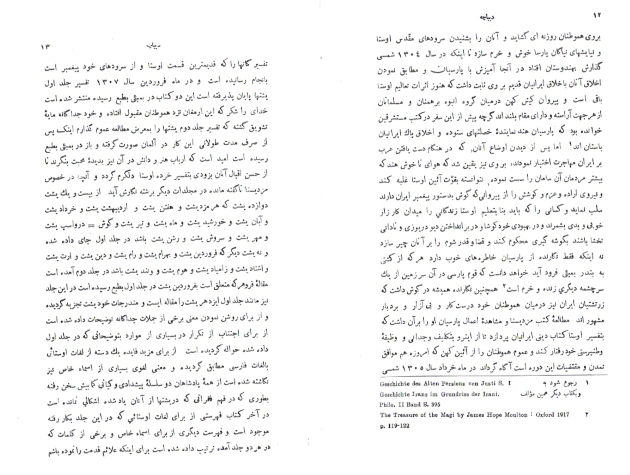 ۱۲
دیباچه
بروی هموطنان روزنه ای گشاید و آنان را بشنیدن سرودهای مقدس اوستا
و نیایشهای نیاکان پارسا خوش و خرم سازد تا اینکه در سال ۱۳۰۴ شمسی
گذارش بهندوستان افتاد در آنجا آمیزش با پارسیان و مطابق نمودن
اخلاق آنان باخلاق ایرانیان قدیم بر وی ثابت داشت که هنوز اثرات تعالیم اوستا
باقی است و پیروان کیش کهن درمیان گروه انبوه برهمنان و مسلمانان
از هرجهت آراسته و دارای مقام بلند اند گرچه پیش از این سفر در کتب مستشرقین
خوانده بود که پارسیان هند نمایندهٔ خصلتهای ستوده و اخلاق پاک ایرانیان
باستان اند۱ اما پس از دیدن اوضاع آنان که در هنگام دست یافتن عرب
بر ایران مهاجرت اختیار نمودند، بروی نیز یقین شد که هوای ناخوش هند که
بیشتر مردمان آن سامان را سست نموده نتوانسته بقوّت آئین اوستا غلبه کند
و نیروی اراده و عزم و کوشش را از پیروانی که گوش بدستور پیغمبر ایران دارند
سلب نماید و کسانی را که باید بنا بتعلیم اوستا زندگانی را میدان کارزار
خوبی و بدی بشمرند و در بهبودی خود کوشا و در برانداختن دیو دریوزی و نادانی
تخشا باشند بگوشه گیری محکوم کند و قضا و قدر شوم را بر آنان چیر سازد
نه اینکه فقط نگارنده از پارسیان خاطرهای خوب دارد هر که از کشتی
به بندر بمبئی فرود آید خواهد دانست که قوم پارسی در آن سرزمین از یک
سرچشمه دیگری زنده و خرم است۲ همچنین نگارنده همیشه در گوش داشت که
زرتشتیان ایران نیز درمیان هموطنان خود درست کار و بی آزار و بردبار
مشهور اند مطالعهٔ کتب مزدیسنا و مشاهدهٔ اعمال پارسیان او را برآن داشت که
بتفسیر اوستا کتاب دینی ایرانیان پردازد تا از اینرو بتکلیف وجدانی و وظیفهٔ
وطنپرستی خود رفتار کند و عموم هموطنان را از آئین کهن که امروزه هم موافق
تمدن و مقتضیات این دوره است آگاه گرداند در ماه خرداد سال ۱۳۰۵ شمسی
۱ رجوع شود به Geschichte des Alten Persiens von Justi S. 1
و بکتاب دیگر همین مؤلف Geschichte Irans im Grundriss der Irani.
Philo. II Band S. 395
۲ The Treasure of the Magi by James Hope Moulton : Oxford 1917
p. 119-122
۱۳
دیباچه
تفسیر گاتها را که قدیمترین قسمت اوستا و از سرودهای خود پیغمبر است
بانجام رسانیده است و در ماه فروردین سال ۱۳۰۷ تفسیر جلد اول
یشتها پایان پذیرفته است این دو کتاب در بمبئی بطبع رسیده منتشر شده است
خدای را شکر که این ارمغان نزد هموطنان مقبول افتاده و خود جداگانه مایهٔ
تشویق گشته که تفسیر جلد دوم یشتها را بمعرض مطالعه عموم گذارم اینک پس
از صرف مدت طولانی این کار در آلمان صورت گرفته و باز در بمبئی بطبع
رسیده است امید است که ارباب هنر و دانش در آن نیز بدیدهٔ محبت بنگرند تا
از حسن اقبال آنان بزودی بتفسیر خرده اوستا دلگرم گردد و آنچه در خصوص
مزدیسنا ناگفته مانده در مجلدات دیگر برشته نگارش آید از بیست و یک یشت
دوازده یشت که هرمزدیشت و هفتن یشت و اردیبهشت یشت و خرداد یشت
و آبان یشت و خورشید یشت و ماه یشت و تیر یشت و گوش = درواسپ یشت
و مهر یشت و سروش یشت و رشن یشت باشد در جلد اول جای داده شده
و نه یشت دیگر که فروردین یشت و بهرام یشت و رام یشت و دین یشت و ارت یشت
و اشتاد یشت و زامیاد یشت و هوم یشت و ونند یشت باشد در جلد دوم آمده است
مقالهٔ فروهر که متعلق است بفروردین یشت در جلد اول بطبع رسیده است در این جلد
نیز مانند جلد اول ازبرای هر یشت را مقاله ایست و مندرجات خود یشت تجزیه گردیده
و از برای روشن نمودن معنی برخی از جملات جداگانه توضیحات داده شده است
از برای اجتناب از تکرار در بسیاری از موارد بتوضیحاتی که در جلد اول
داده شده حواله گردیده است از برای مزید فایده یک دسته از لغات اوستائی
بالغات فارسی مطابق گردیده و معنی لغوی بسیاری از اسماء خاص نیز
نگاشته شده است از همهٔ پادشاهان دو سلسلهٔ پیشدادی و کیانی کمابیش سخن رفته
بطوری که در فهم فقراتی که دریشتها از آنان یاد شده اشکالی نمانده است
در آخر کتاب فهرستی از برای لغات اوستائی که در این جلد بکار رفته
موجود است و فهرست دیگری از برای اسماء خاص و برخی از کلمات که
در هر دو جلد آمده ترتیب داده شده است برای اینکه علائم قدمت را نموده باشم